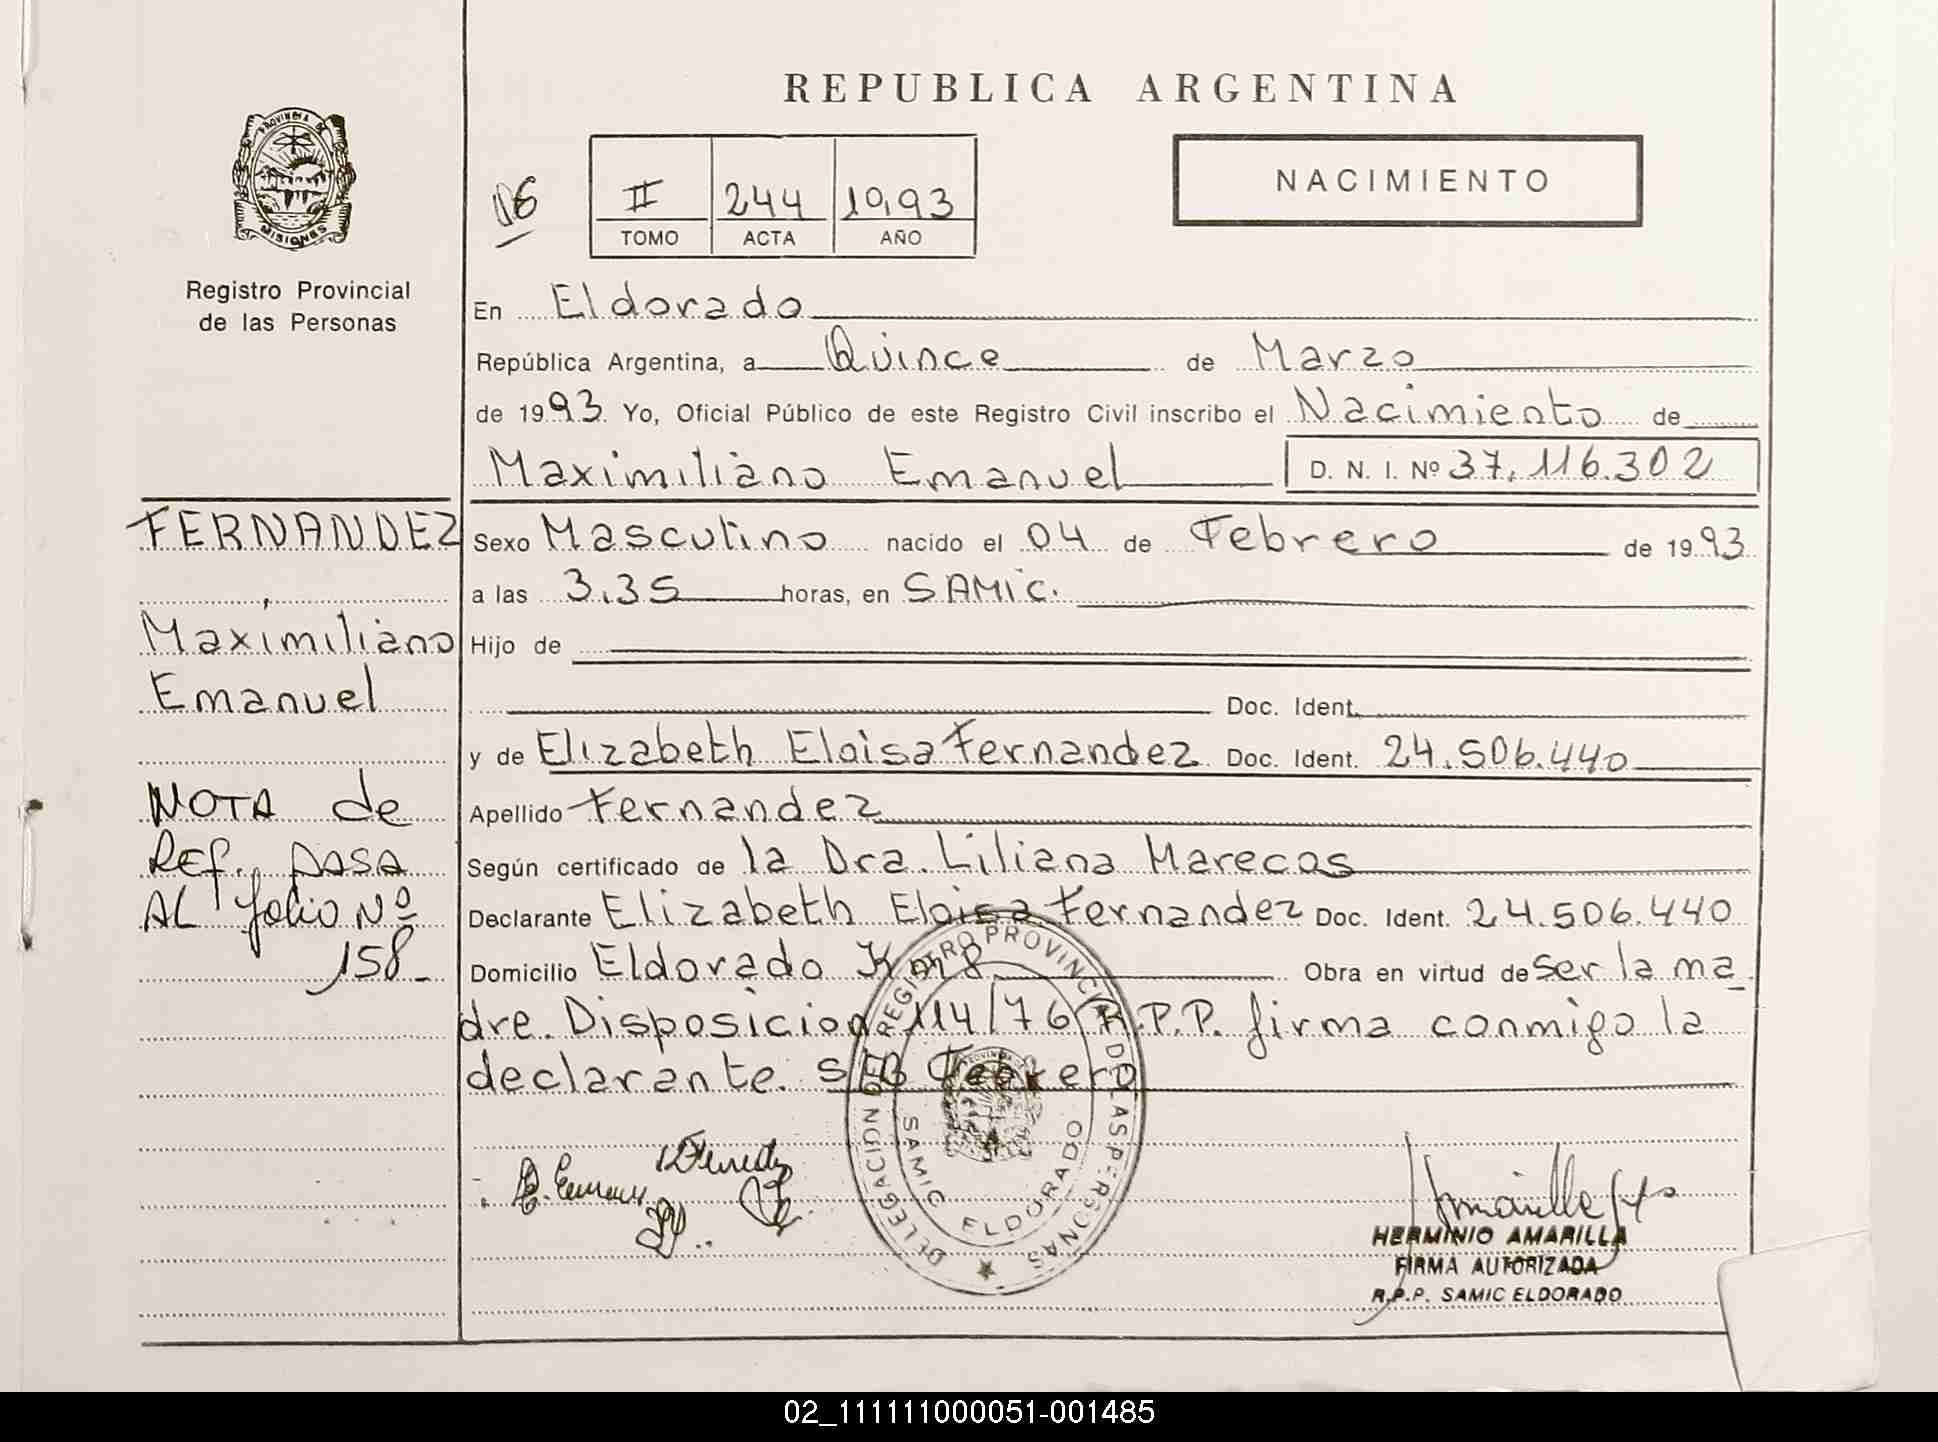 REPUBLICA ARGENTINA
PROVINCIA DE
MISIONES
Registro Provincial
de las Personas
06
II 244 1993
TOMO ACTA AÑO
NACIMIENTO
En Eldorado
República Argentina, a Quince de Marzo
de 1993. Yo, Oficial Público de este Registro Civil inscribo el Nacimiento de
Maximiliano Emanuel D. N. I. Nº 37.116.302
Sexo Masculino nacido el 04 de Febrero de 1993
a las 3.35 horas, en SAMIC.
Hijo de
Doc. Ident.
y de Elizabeth Eloisa Fernandez Doc. Ident. 24.506.440
Apellido Fernandez
Según certificado de la Dra. Liliana Marecos
Declarante Elizabeth Eloisa Fernandez Doc. Ident. 24.506.440
Domicilio Eldorado Km 8 Obra en virtud de ser la ma
dre. Disposicion 114/76 R.P.P. firma conmigo la
declarante. S/B Febrero
FERNANDEZ
,
Maximiliano
Emanuel
NOTA de
REF. PASA
AL folio Nº
158
DELEGACION DEL REGISTRO PROVINCIAL DE LAS PERSONAS
SAMIC ELDORADO
HERMINIO AMARILLA
FIRMA AUTORIZADA
R.P.P. SAMIC ELDORADO
02_111111000051-001485